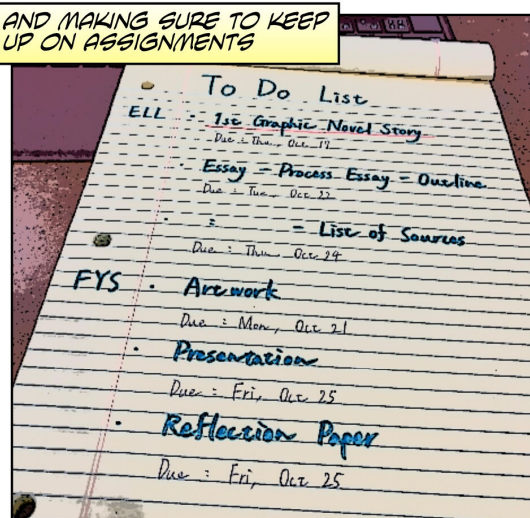 AND MAKING SURE TO KEEP
UP ON ASSIGNMENTS
To Do List
ELL · 1st Graphic Novel Story
Due : Thu, Oct 17
Essay - Process Essay - Outline
Due : Tue, Oct 22
· : - List of Sources
Due : Thu Oct 24
FYS · Artwork
Due : Mon, Oct 21
· Presentation
Due : Fri, Oct 25
· Reflection Paper
Due : Fri, Oct 25